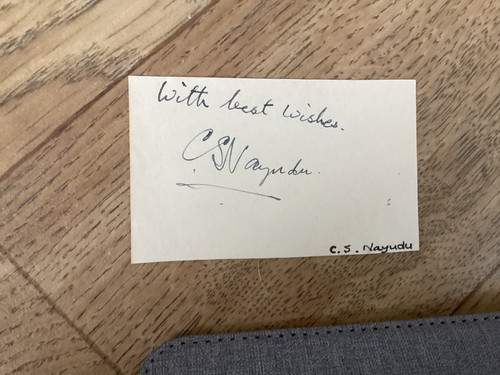 With best wishes.
C.S Nayudu.
C. S. Nayudu